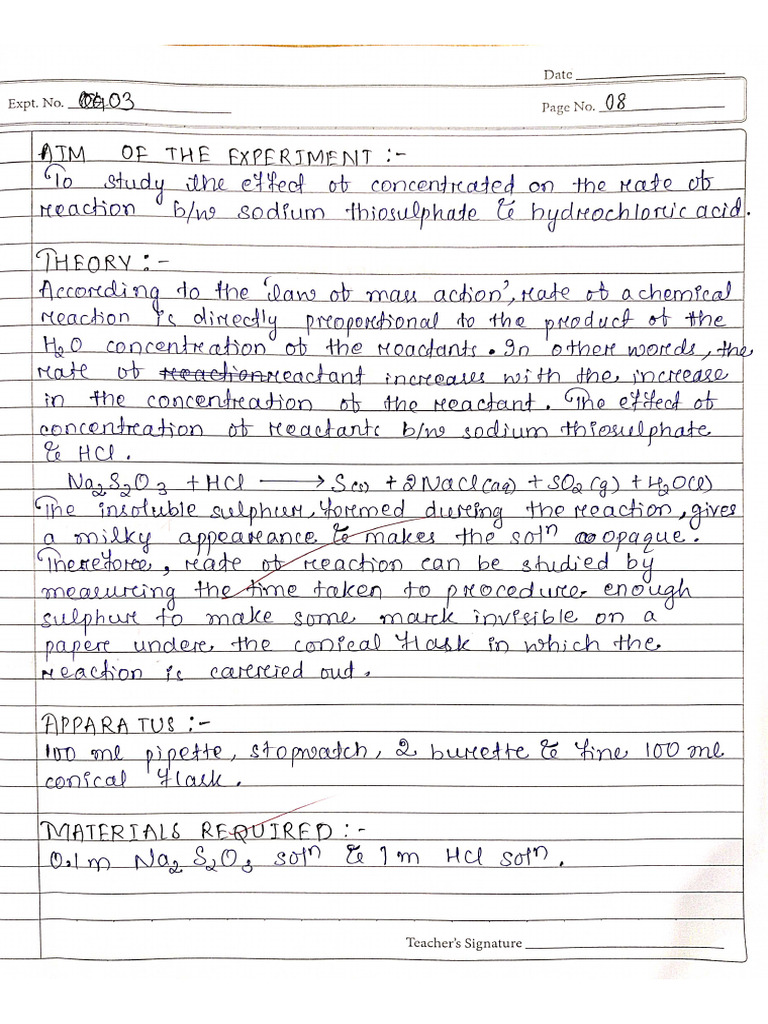 Date
Expt. No. 03
Page No. 08
AIM OF THE EXPERIMENT :-
To study the effect of concentrated on the rate of
reaction b/w sodium thiosulphate & hydrochloric acid.
THEORY :-
According to the 'law of mass action', rate of a chemical
reaction is directly proportional to the product of the
H2O concentration of the reactants. In other words, the
rate of reaction reactant increases with the increase
in the concentration of the reactant. The effect of
concentration of reactants b/w sodium thiosulphate
& HCl.
Na2S2O3 + HCl ⟶ S(s) + 2NaCl(aq) + SO2(g) + H2O(l)
The insoluble sulphur, formed during the reaction, gives
a milky appearance & makes the solⁿ opaque.
Therefore, rate of reaction can be studied by
measuring the time taken to procedure enough
sulphur to make some mark invisible on a
paper under the conical flask in which the
reaction is carried out.
APPARATUS :-
100 ml pipette, stopwatch, 2 burette & fine 100 ml
conical flask.
MATERIALS REQUIRED :-
0.1m Na2S2O3 solⁿ & 1m HCl solⁿ.
Teacher's Signature